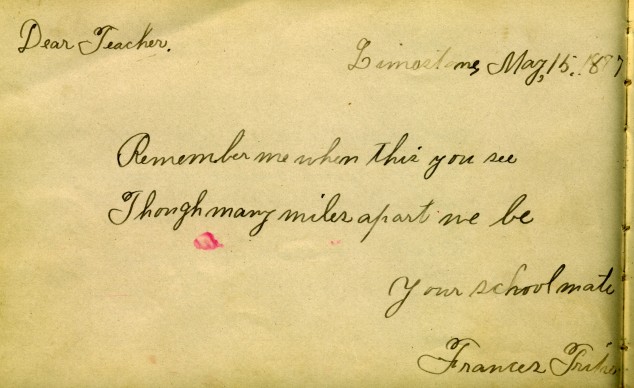 Dear Teacher.
Limestone, May, 15. 1897
Remember me when this you see
Though many miles apart we be
Your schoolmate
Frances